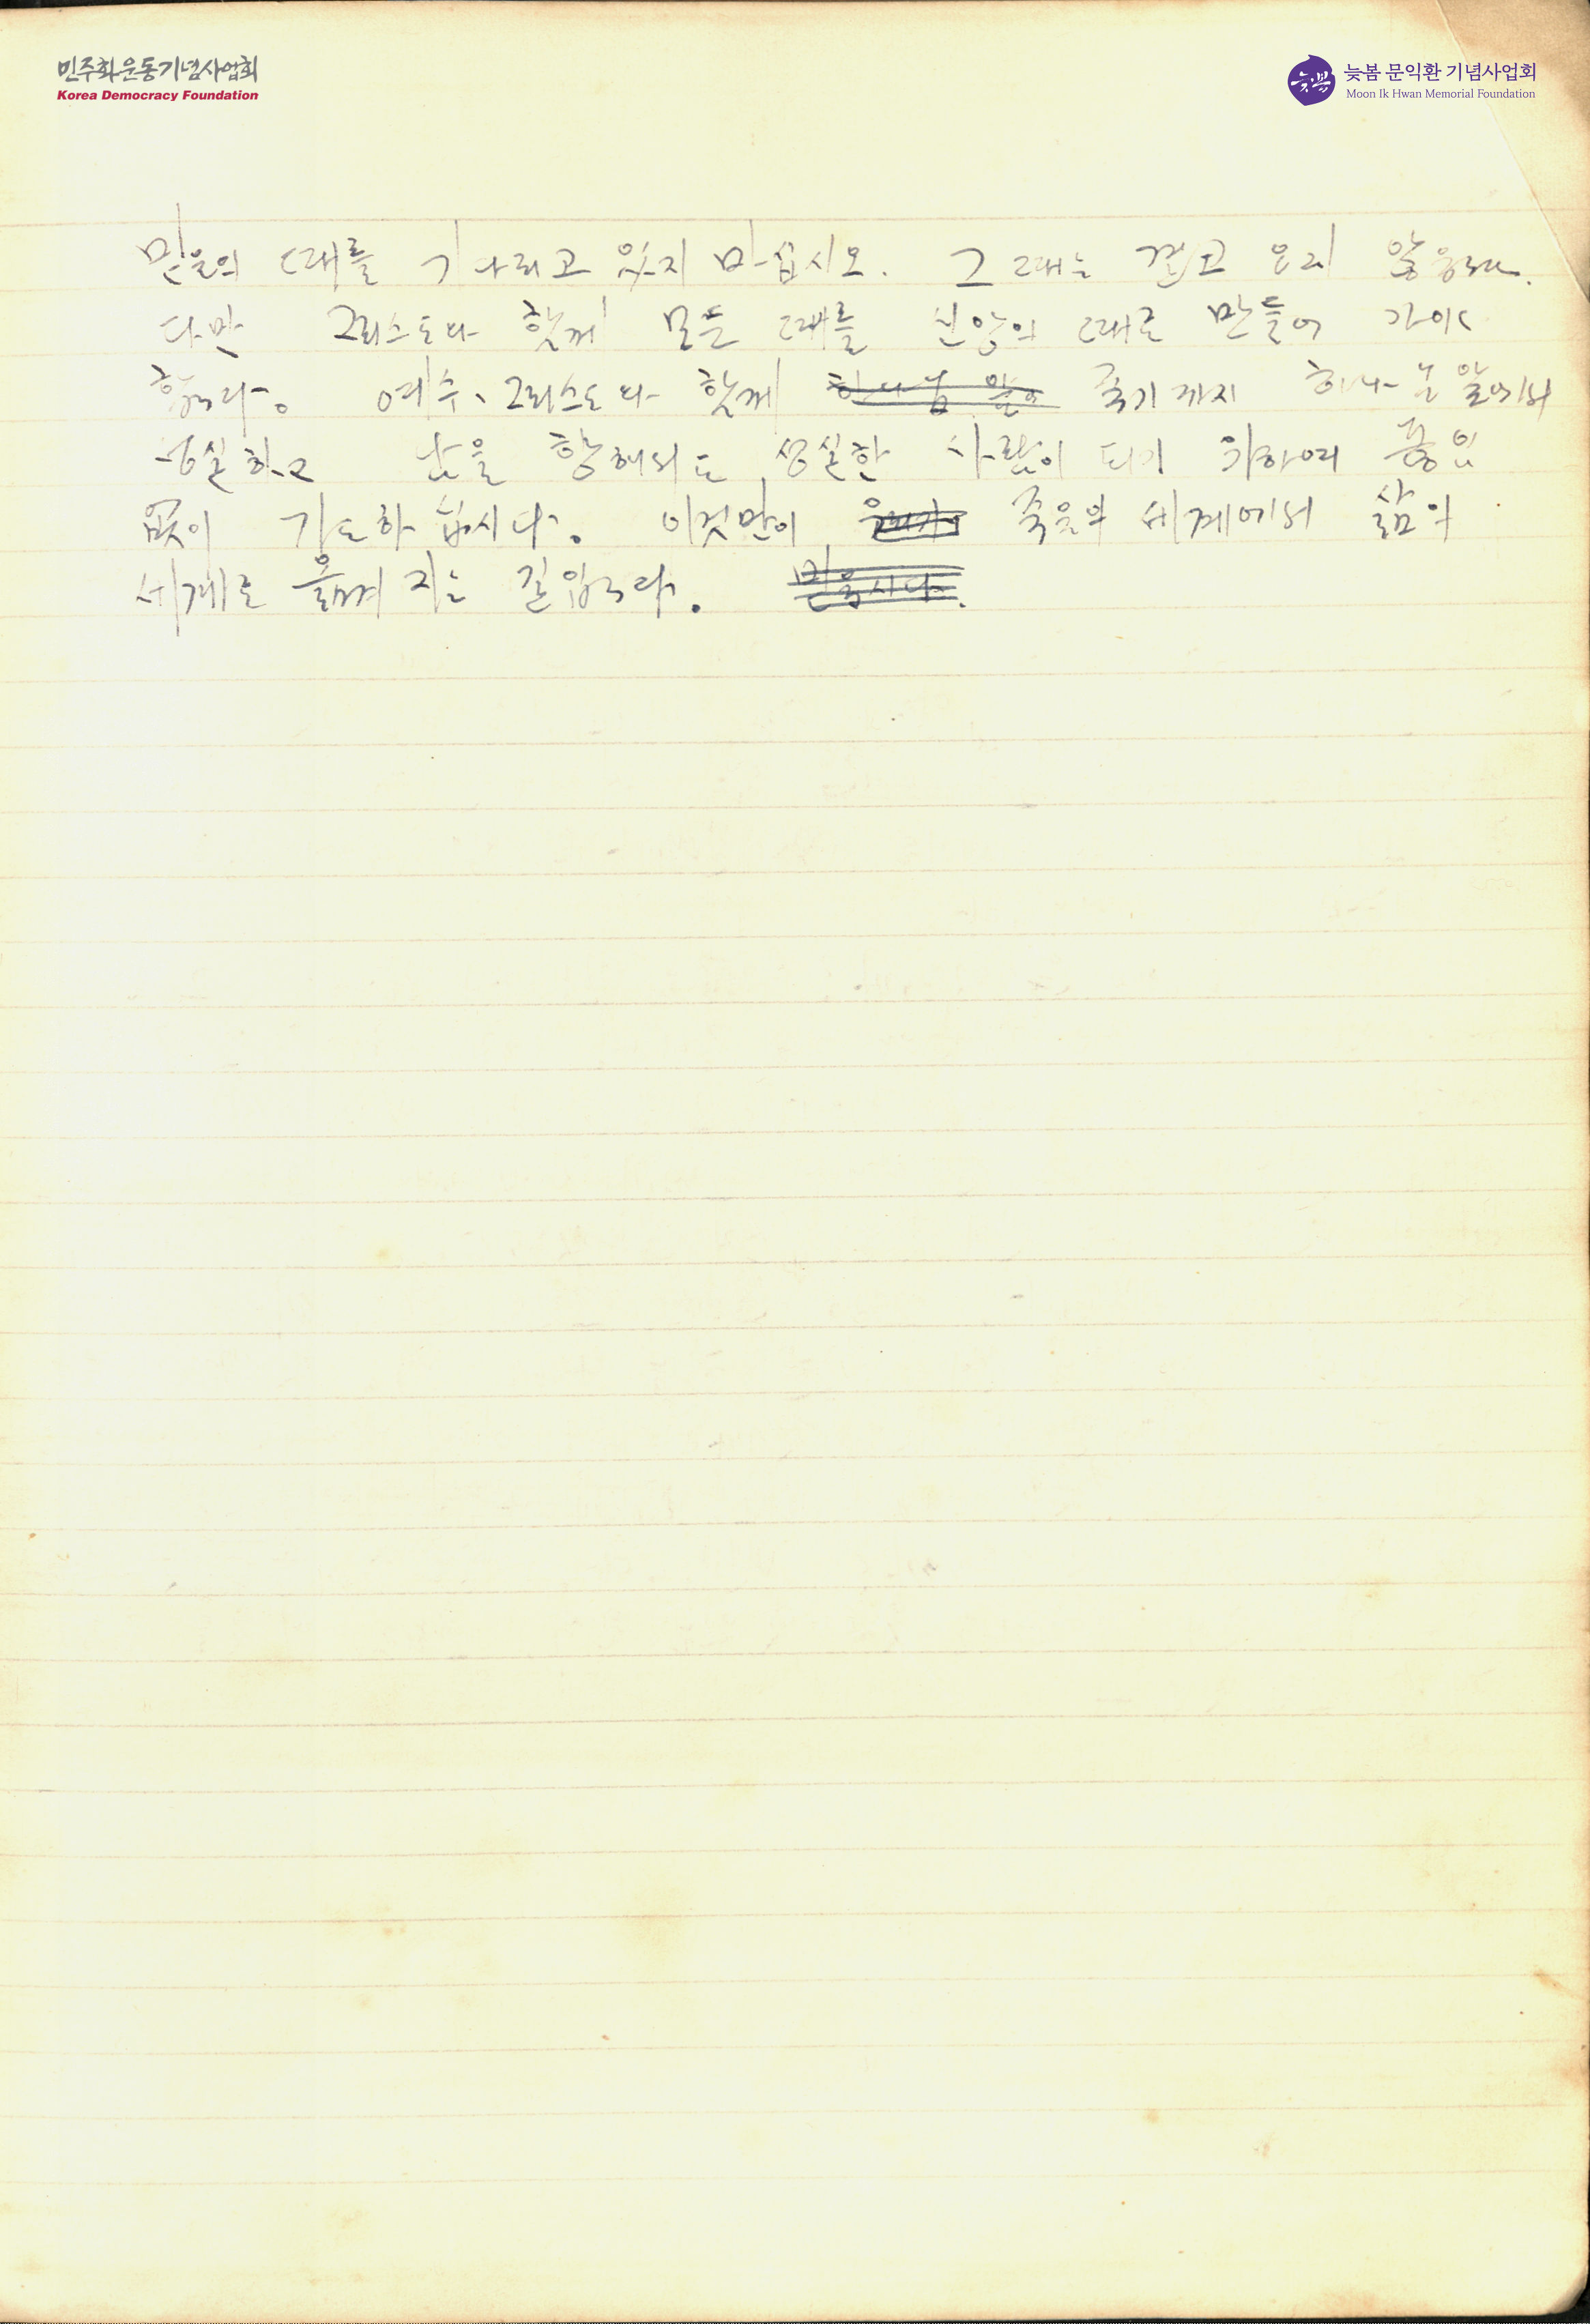 민주화운동기념사업회
Korea Democracy Foundation
늦봄
늦봄 문익환 기념사업회
Moon Ik Hwan Memorial Foundation
믿음의 때를 기다리고 있지 마십시오. 그 때는 결코 오지 않습니다.
다만 그리스도와 함께 모든 때를 신앙의 때로 만들어 가야
합니다. 예수, 그리스도와 함께 하나님 앞에 죽기까지 하나님 앞에서
성실하고 남을 향해서도 성실한 사람이 되기 위하여 끊임
없이 기도하십시다. 이것만이 죽음의 세계에서 삶의
세계로 옮겨지는 길입니다. 믿읍시다.